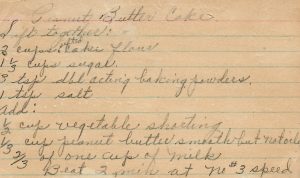 Peanut Butter Cake
Sift together:
2 cups sifted cake flour
1⅓ cups sugar
3 tsp dbl acting baking powders.
1 tsp salt
Add:
⅓ cup vegetable shorting
⅓ cup peanut butter smooth but not oily
2/3 of one cup of milk
Beat 2 min at No #3 speed